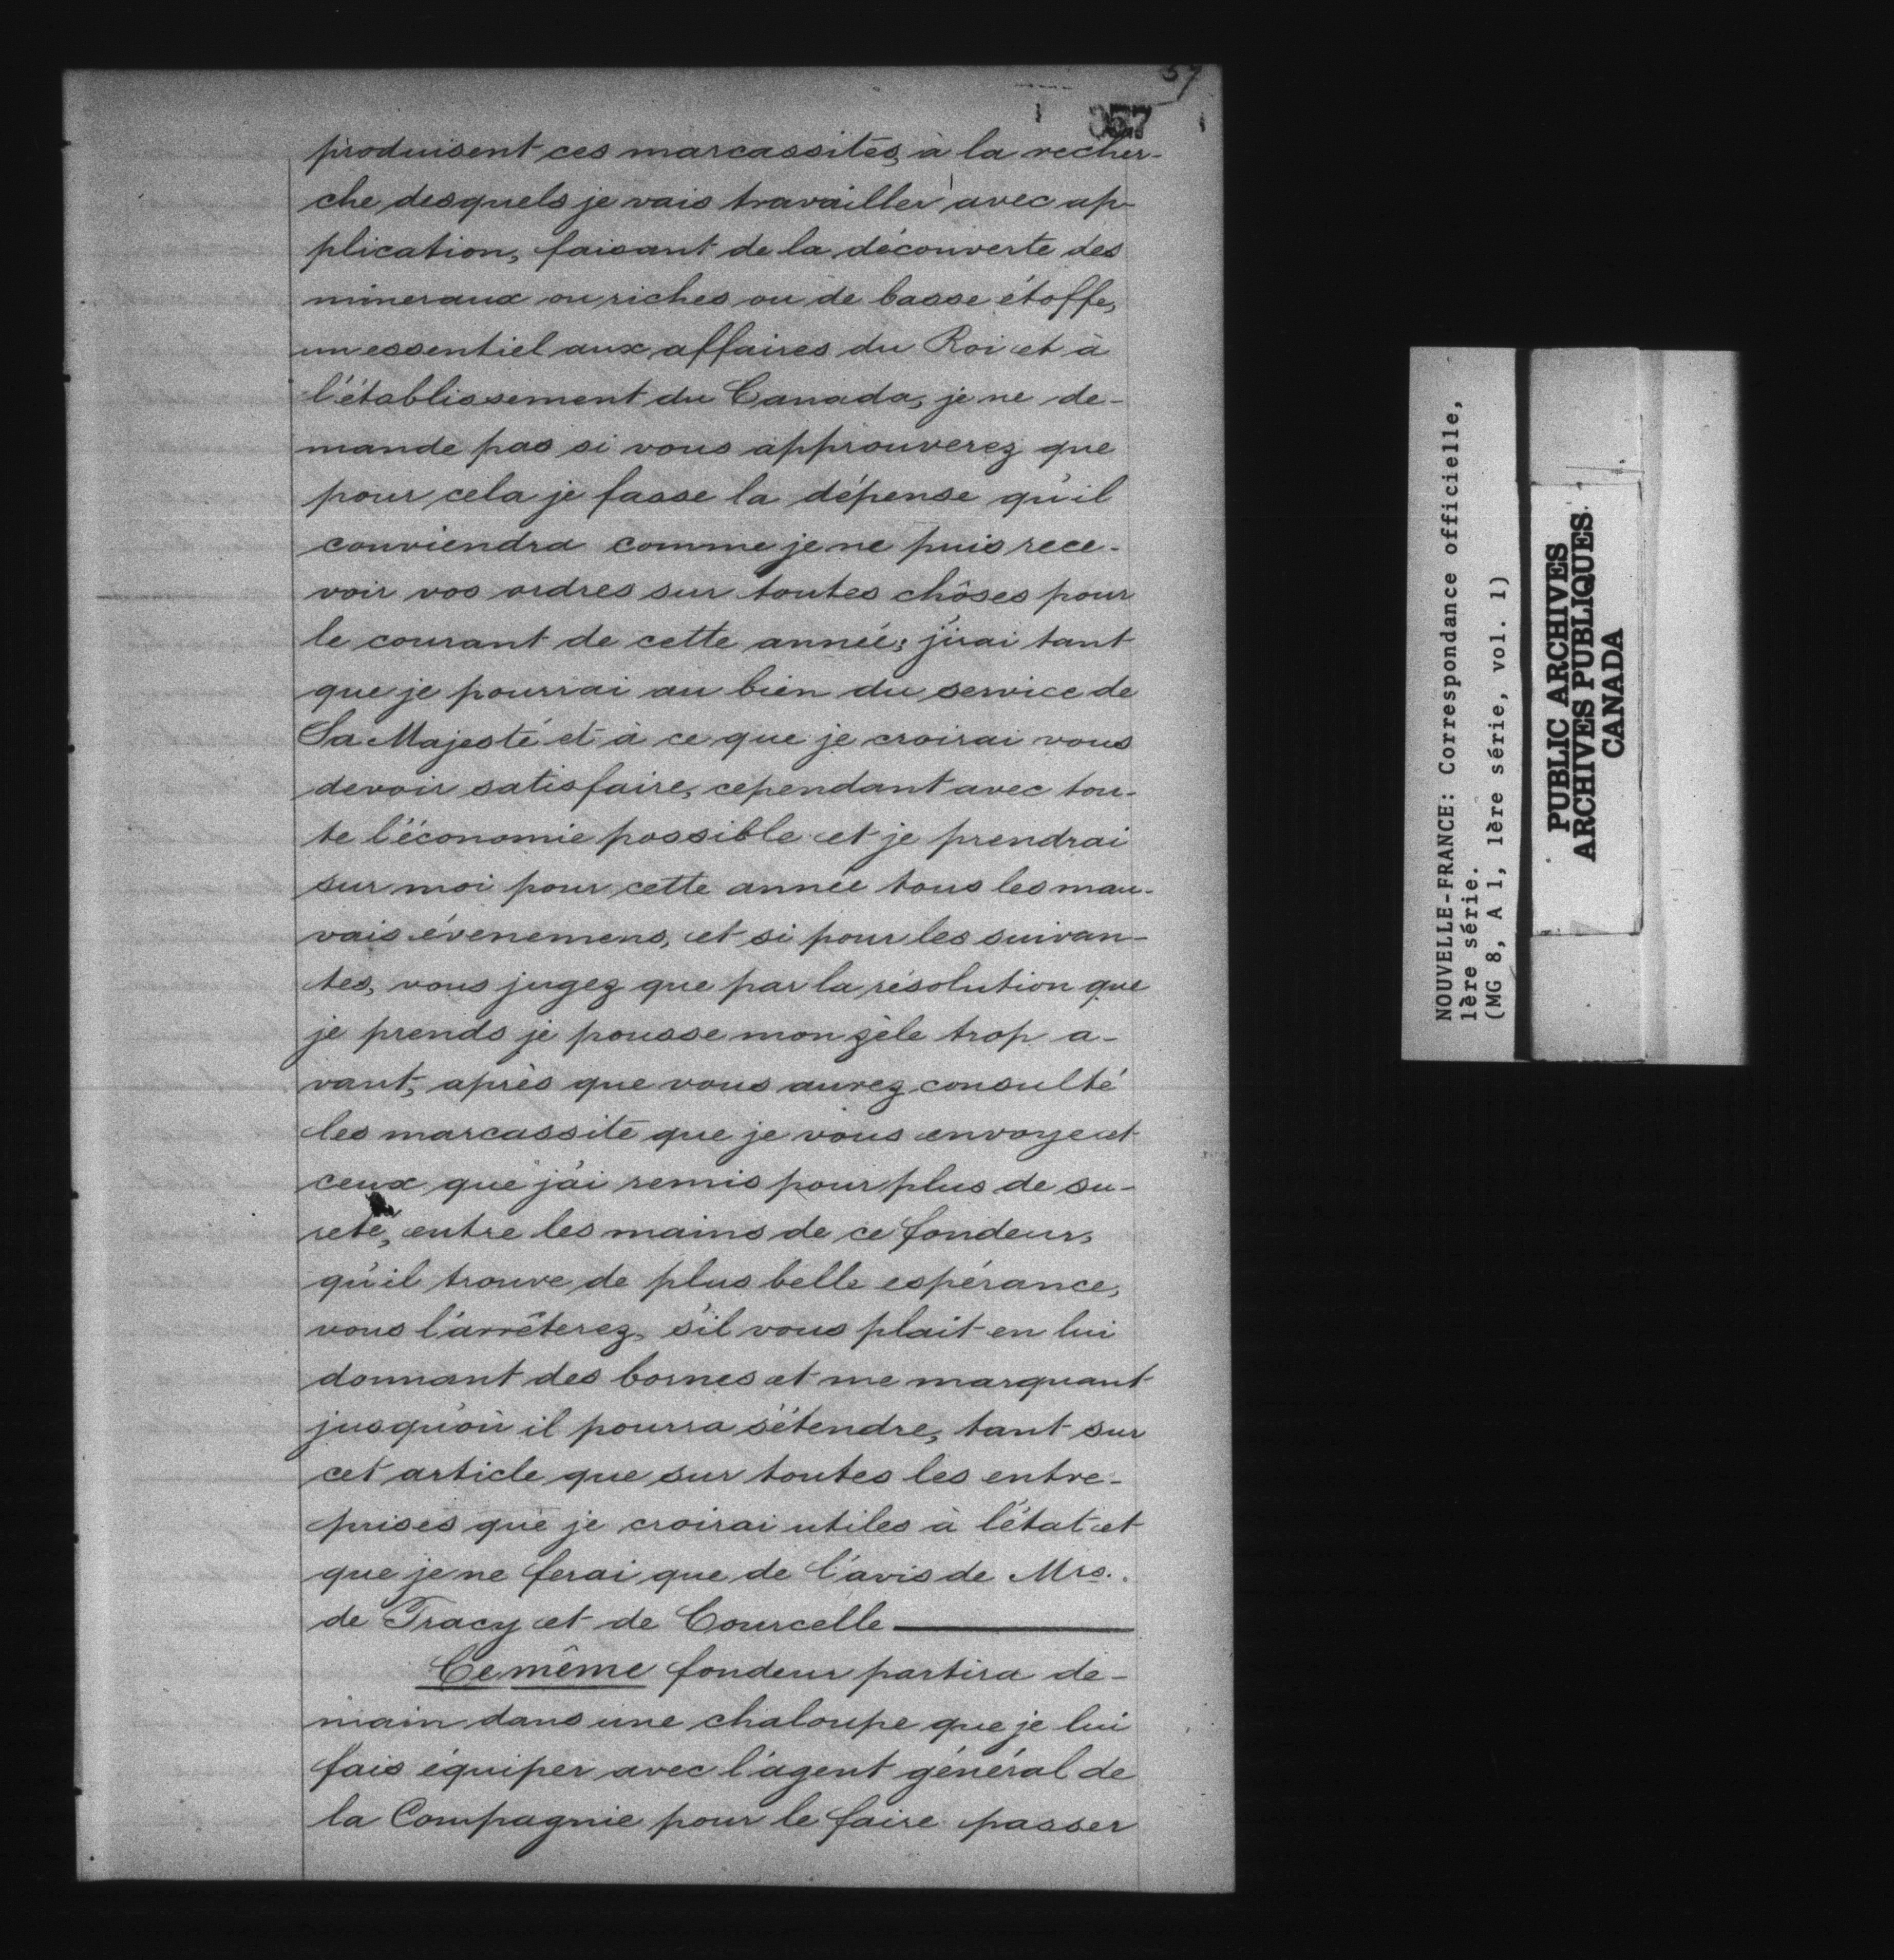 57
057
produisent ces marcassites, à la recher-
che desquels je vais travailler avec ap-
plication, faisant de la découverte des
mineraux ou riches ou de basse étoffe,
un essentiel aux affaires du Roi et à
l'établissement du Canada, je ne de-
mande pas si vous approuverez que
pour cela je fasse la dépense qu'il
conviendra comme je ne puis rece-
voir vos ordres sur toutes chôses pour
le courant de cette année; j'irai tant
que je pourrai au bien du service de
Sa Majesté et à ce que je croirai vous
devoir satisfaire, cependant avec tou-
te l'économie possible et je prendrai
sur moi pour cette année tous les mau-
vais évenemens, et si pour les suivan-
tes, vous jugez que par la résolution que
je prends je pousse mon zèle trop a-
vant, après que vous aurez consulté
les marcassite que je vous envoye et
ceux que j'ai remis pour plus de su-
reté, entre les mains de ce fondeur,
qu'il trouve de plus belle espérance,
vous l'arrêterez, s'il vous plait en lui
donnant des bornes et me marquant
jusqu'où il pourra s'étendre, tant sur
cet article que sur toutes les entre-
prises que je croirai utiles à l'état et
que je ne ferai que de l'avis de Mrs.
de Tracy et de Courcelle
Ce même fondeur partira de-
main dans une chaloupe que je lui
fais équiper avec l'agent général de
la Compagnie pour le faire passer
NOUVELLE-FRANCE: Correspondance officielle,
1ère série.
(MG 8, A 1, 1ère série, vol. 1)
PUBLIC ARCHIVES
ARCHIVES PUBLIQUES
CANADA